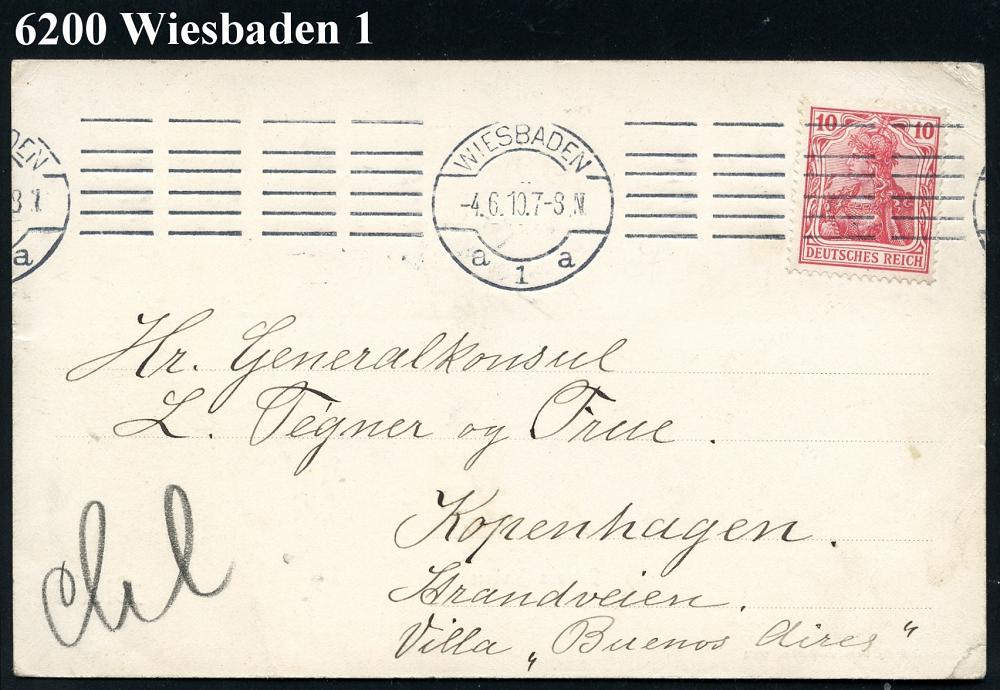 6200 Wiesbaden 1
DEN
WIESBADEN
10 10
-4.6.10.7-8 N.
a 1 a
a
DEUTSCHES REICH
Hr. Generalkonsul
L. Tegner og Frue.
Kopenhagen.
Strandveien.
Villa „Buenos Aires“